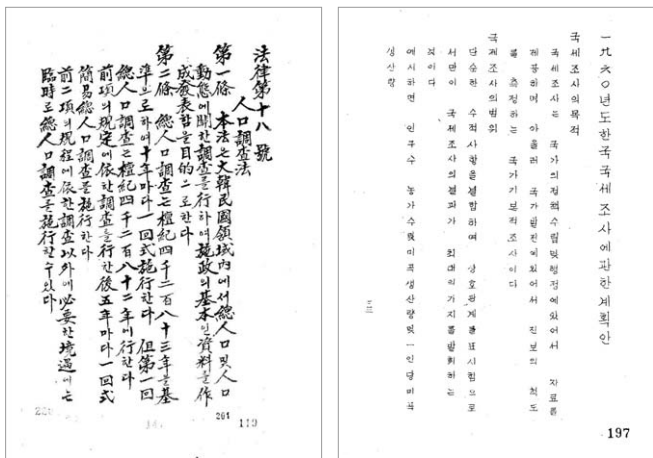 法律第十八號
人口調査法
第一條 本法은大韓民國領域內에서總人口及人口
動態에關한調査를行하여施政의基本인資料를作
成發表함을目的으로한다
第二條 總人口調査는檀紀四千二百八十三年을基
準으로하여十年마다一回式施行한다 但第一回
總人口調査는檀紀四千二百八十二年에行한다
前項의規定에依한調査를行한後五年마다一回式
簡易總人口調査를施行한다
前二項의規程에依한調査以外에必要한境遇에는
臨時로總人口調査를施行할수있다
201
119
一九六○년도한국국세조사에관한계획안
국세조사의목적
국세조사는 국가의정책수립및행정에있어서 자료를
제공하며 아울러 국가발전에있어서 진보의 척도
를 측정하는 국가기본적조사이다
국세조사의범위
단순한 수적사항을결합하여 상호관계를표시함으로
서만이 국세조사의결과가 최대의가치를발휘하는
것이다
예시하면 인구수 농가수및미곡생산량및一인당미곡
생산량
197